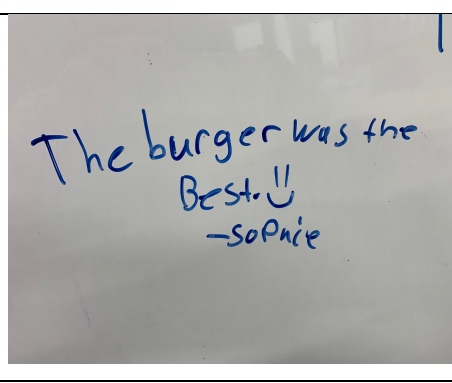 The burger was the
Best. 
-Sophie